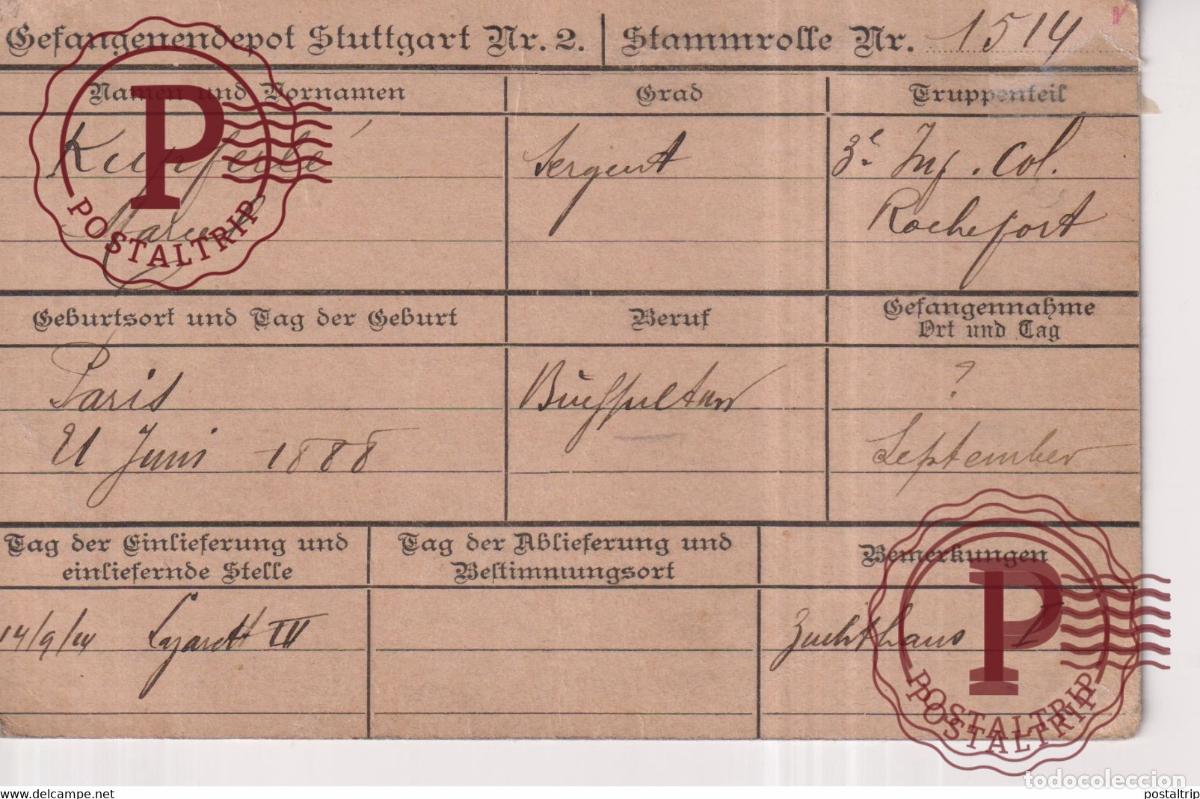 Gefangenendepot Stuttgart Nr. 2. Stammrolle Nr. 1514
Namen und Vornamen Grad Truppenteil
Sergent 3e Inf. Col.
Rochefort
Geburtsort und Tag der Geburt Beruf Gefangennahme
Ort und Tag
Paris Buchhalter ?
21 Juni 1888 September
Tag der Einlieferung und Tag der Ablieferung und Bemerkungen
einliefernde Stelle Bestimmungsort
14/9/14 Lazarett III Zuchthaus
P
POSTALTRIP
P
POSTALTRIP
POSTALTRIP
todocoleccion
www.delcampe.net postaltrip